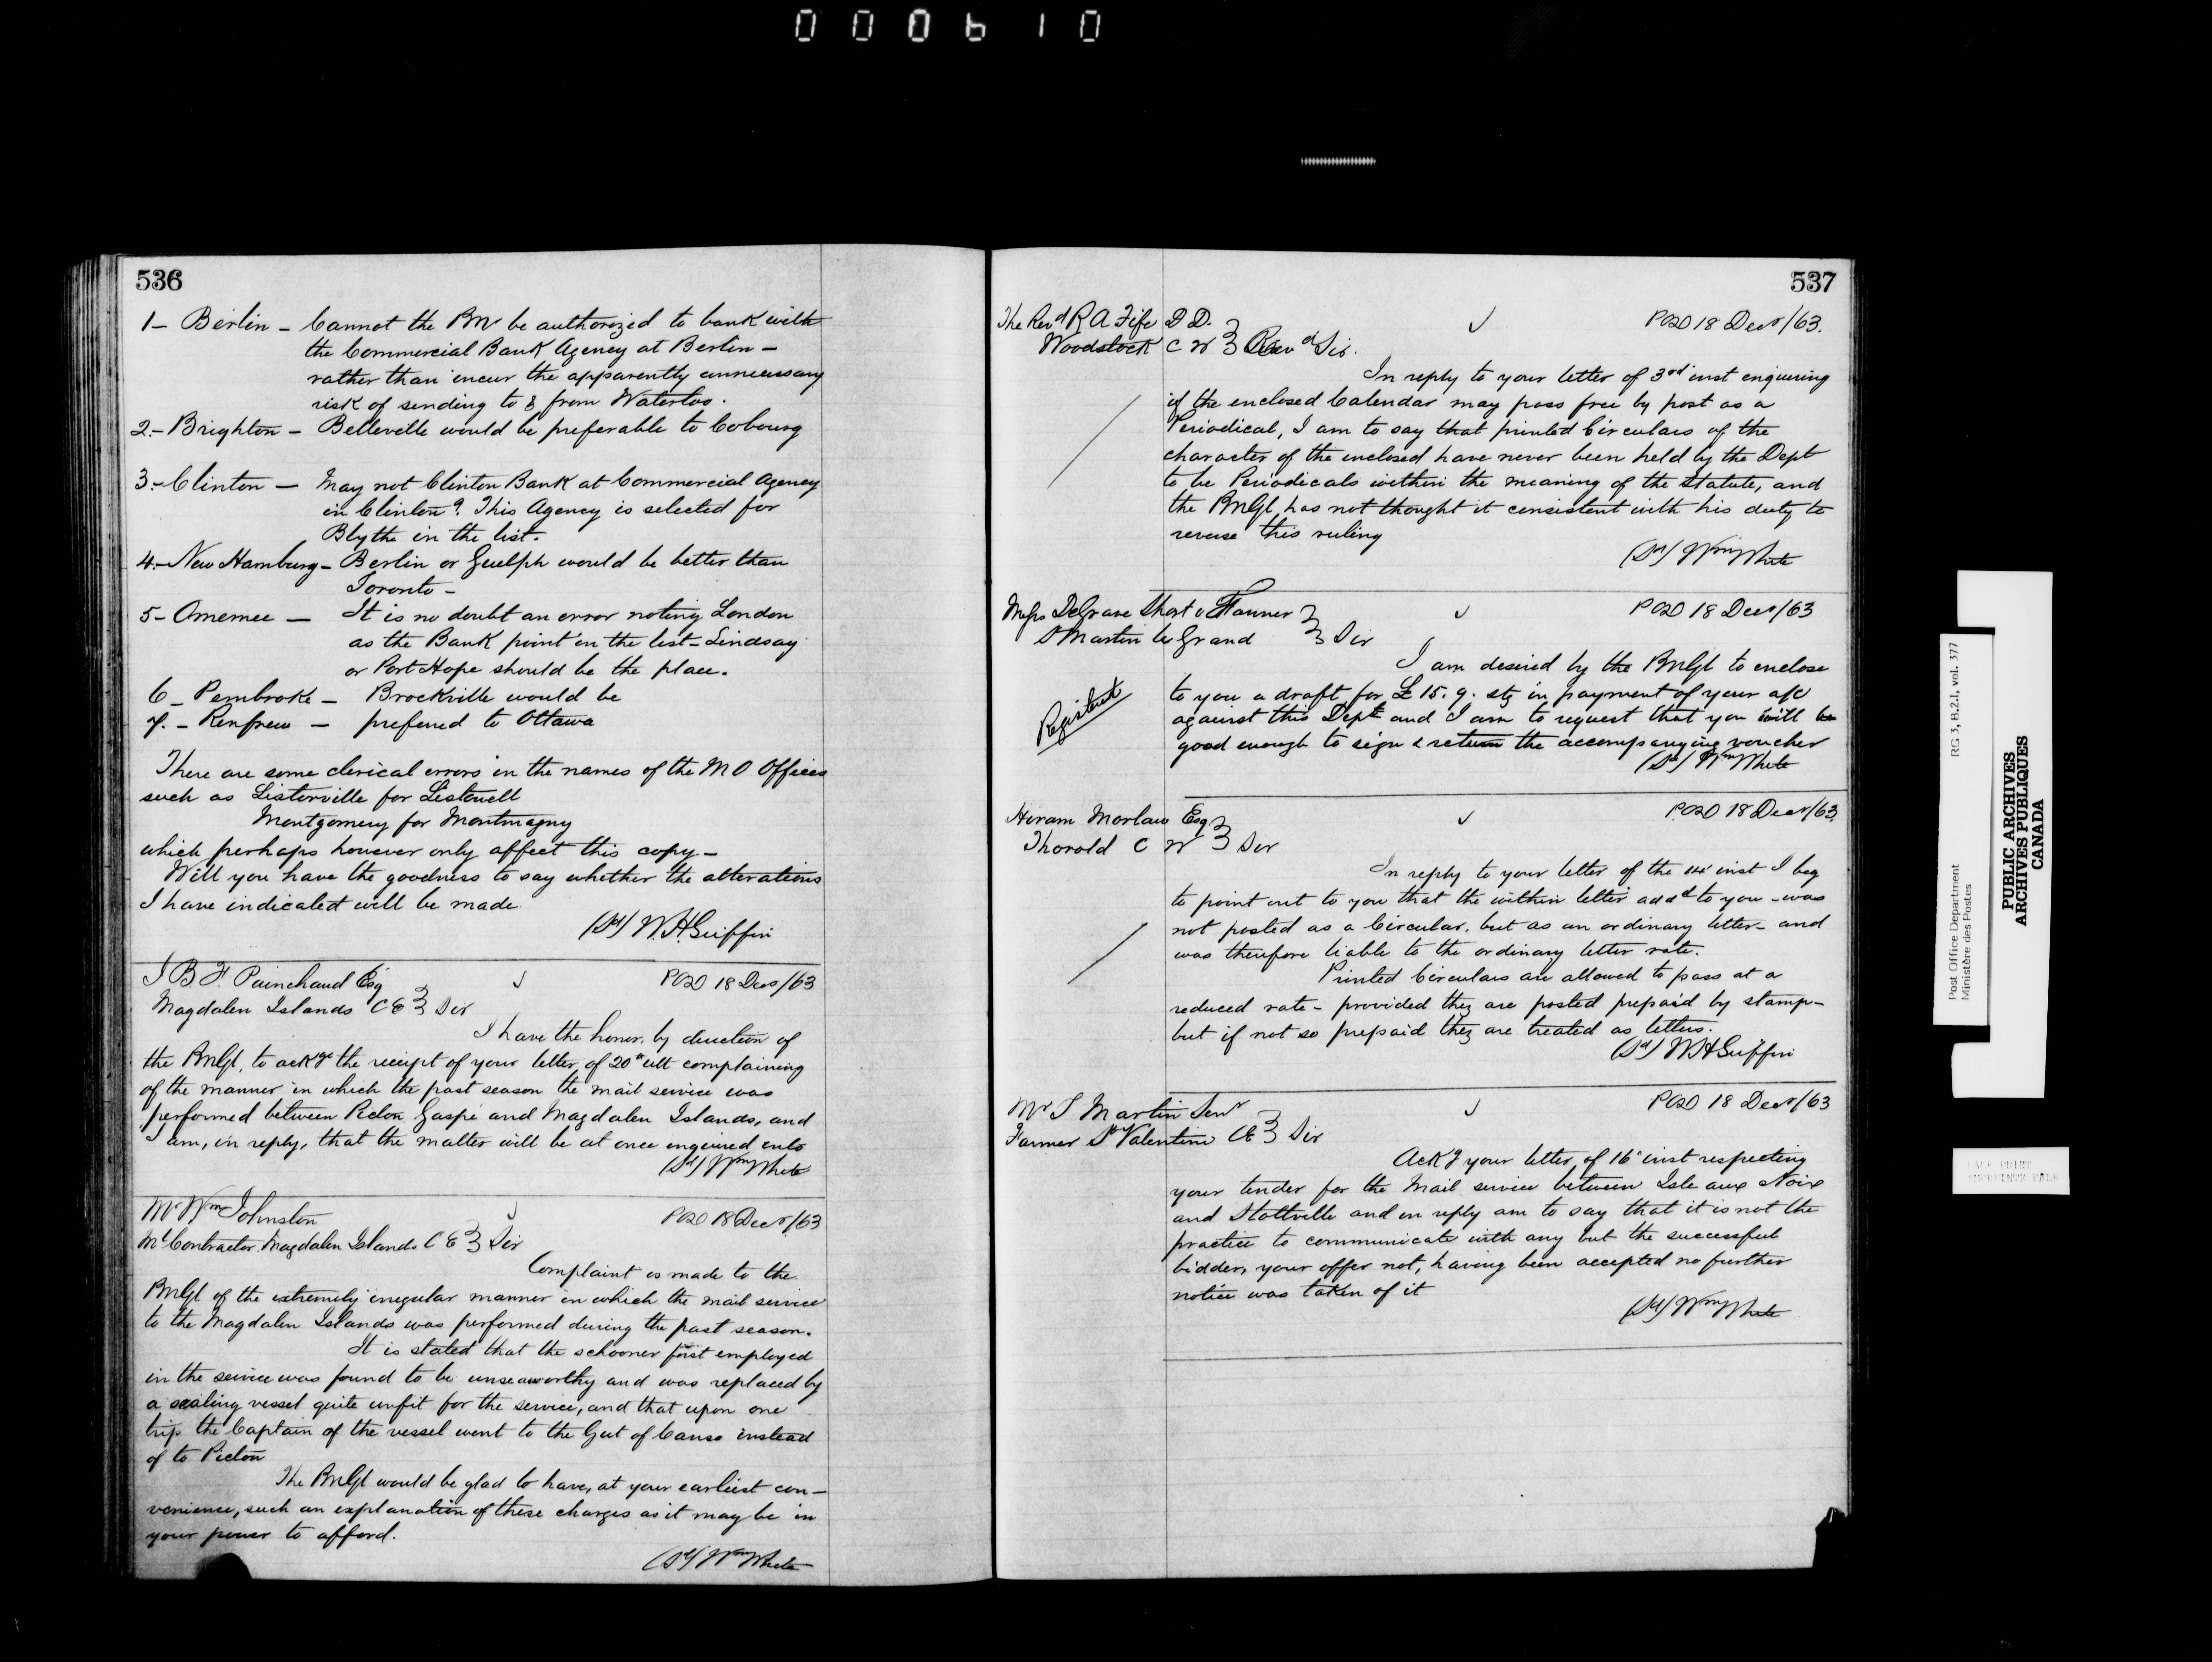 000610
536
1 - Berlin - Cannot the PMr be authorized to bank with
the Commercial Bank Agency at Berlin -
rather than incur the apparently unnecessary
risk of sending to & from Waterloo.
2 - Brighton - Belleville would be preferable to Cobourg
3 - Clinton - May not Clinton Bank at Commercial Agency
in Clinton? This Agency is selected for
Blythe in the list.
4 - New Hamburg - Berlin or Guelph would be better than
Toronto -
5 - Omemee - It is no doubt an error noting London
as the Bank point in the list - Lindsay
or Port Hope should be the place.
6 - Pembroke - Brockville would be
7. - Renfrew - preferred to Ottawa
There are some clerical errors in the names of the M O Offices
such as Listorville for Listowell
Montgomery for Montmagny
which perhaps however only affect this copy -
Will you have the goodness to say whether the alterations
I have indicated will be made.
(Sd) W. H. Griffin
J B F Painchaud Esq POD 18 Decr/63
Magdalen Islands C E } Sir
I have the honor, by direction of
the PMGl, to ackge the receipt of your letter of 20th ult complaining
of the manner in which the past season the mail service was
performed between Pictou Gaspé and Magdalen Islands, and
I am, in reply, that the matter will be at once enquired into
(Sd) Wm White
Mr Wm Johnston POD 18 Decr/63
Ml Contractor. Magdalen Islands C E } Sir
Complaint is made to the
PMGl of the extremely irregular manner in which the mail service
to the Magdalen Islands was performed during the past season.
It is stated that the schooner first employed
in the service was found to be unseaworthy and was replaced by
a sealing vessel quite unfit for the service, and that upon one
trip the Captain of the vessel went to the Gut of Canso instead
of to Pictou
The PMGl would be glad to have, at your earliest con-
venience, such an explanation of these charges as it may be in
your power to afford.
(Sd) Wm White
537
The Revd R A Fife D D. POD 18 Decr/63.
Woodstock C W } Revd Sir.
In reply to your letter of 3rd inst enquiring
if the enclosed Calendar may pass free by post as a
Periodical, I am to say that printed Circulars of the
character of the enclosed have never been held by the Dept
to be Periodicals within the meaning of the Statute, and
the PMGl has not thought it consistent with his duty to
reverse this ruling
(Sd) Wm White
Messrs DeGrave Short & Fanner POD 18 Decr/63
St Martin le Grand } Sir
I am desired by the PMGl to enclose
to you a draft for £15. 9. stg in payment of your a/c
against this Dept and I am to request that you will be
good enough to sign & return the accompanying voucher
Registered
(Sd) Wm White
Hiram Morlaw Esq POD 18 Decr/63
Thorold C W } Sir
In reply to your letter of the 14 inst I beg
to point out to you that the within letter addd to you - was
not posted as a Circular, but as an ordinary letter - and
was therefore liable to the ordinary letter rate.
Printed Circulars are allowed to pass at a
reduced rate - provided they are posted prepaid by stamp -
but if not so prepaid they are treated as letters.
(Sd) W H Griffin
Mr S Martin Senr POD 18 Decr/63
Farmer St Valentine C E } Sir
Ackg your letter, of 16th inst respecting
your tender for the Mail service between Isle aux Noix
and Stottville and in reply am to say that it is not the
practice to communicate with any but the successful
bidder, your offer not, having been accepted no further
notice was taken of it
(Sd) Wm White
Post Office Department RG 3, B.2.1, vol. 377
Ministère des Postes
PUBLIC ARCHIVES
ARCHIVES PUBLIQUES
CANADA